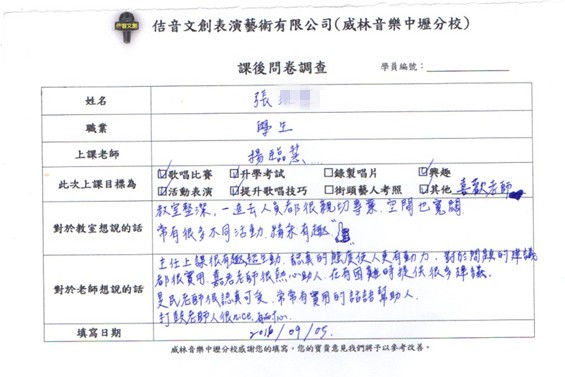 佶音文創
佶音文創表演藝術有限公司(威林音樂中壢分校)
課後問卷調查 學員編號：
姓名 張
職業 學生
上課老師 楊臨慧
此次上課目標為 ☑歌唱比賽 ☑升學考試 □錄製唱片 ☑興趣
☑活動表演 ☑提升歌唱技巧 □街頭藝人考照 ☑其他 喜歡老師
對於教室想說的話 教室整潔，一進去人員都很親切專業.空間也寬闊
常有很多不同活動,精采有趣
對於老師想說的話 主任上課很有趣超生動.認真的態度使人更有動力，對於問題的建議
都很實用.嘉君老師很熱心助人.在有困難時提供很多建議.
是民老師很認真可愛.常常有實用的話語幫助人.
打鼓老師人很nice.有耐心.
填寫日期 2016/09/05.
威林音樂中壢分校感謝您的填寫，您的寶貴意見我們將予以參考改善。